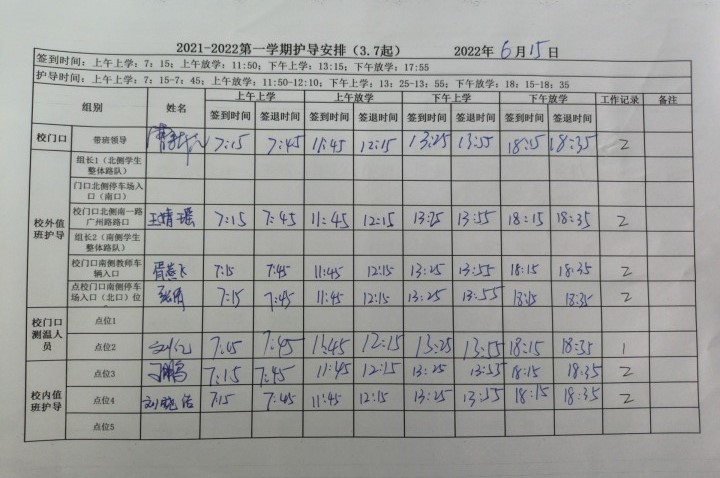 2021-2022第一学期护导安排（3.7起） 2022年 6月 15日
签到时间：上午上学：7：15；上午放学：11:50；下午上学：13:15；下午放学：17:55
护导时间：上午上学：7:15-7：45；上午放学：11:50-12:10；下午上学：13：25-13：55；下午放学：18：15-18：35
组别 姓名 上午上学 上午放学 下午上学 下午放学 工作记录 备注
签到时间 签退时间 签到时间 签退时间 签到时间 签退时间 签到时间 签退时间
校门口 带班领导 7:15 7:45 11:45 12:15 13:25 13:55 18:15 18:35 2
校外值班护导
组长1（北侧学生整体路队）
门口北侧停车场入口（南口）
校门口北侧南一路广州路路口 王婧瑶 7:15 7:45 11:45 12:15 13:25 13:55 18:15 18:35 2
组长2（南侧学生整体路队）
校门口南侧教师车辆入口 7:15 7:45 11:45 12:15 13:25 13:55 18:15 18:35 2
点校门口南侧停车场入口（北口）位 7:15 7:45 11:45 12:15 13:25 13:55 18:15 18:35 2
校门口测温人员
点位1
点位2 7:15 7:45 11:45 12:15 13:25 13:55 18:15 18:35 1
校内值班护导
点位3 7:15 7:45 11:45 12:15 13:25 13:55 18:15 18:35 2
点位4 7:15 7:45 11:45 12:15 13:25 13:55 18:15 18:35 2
点位5